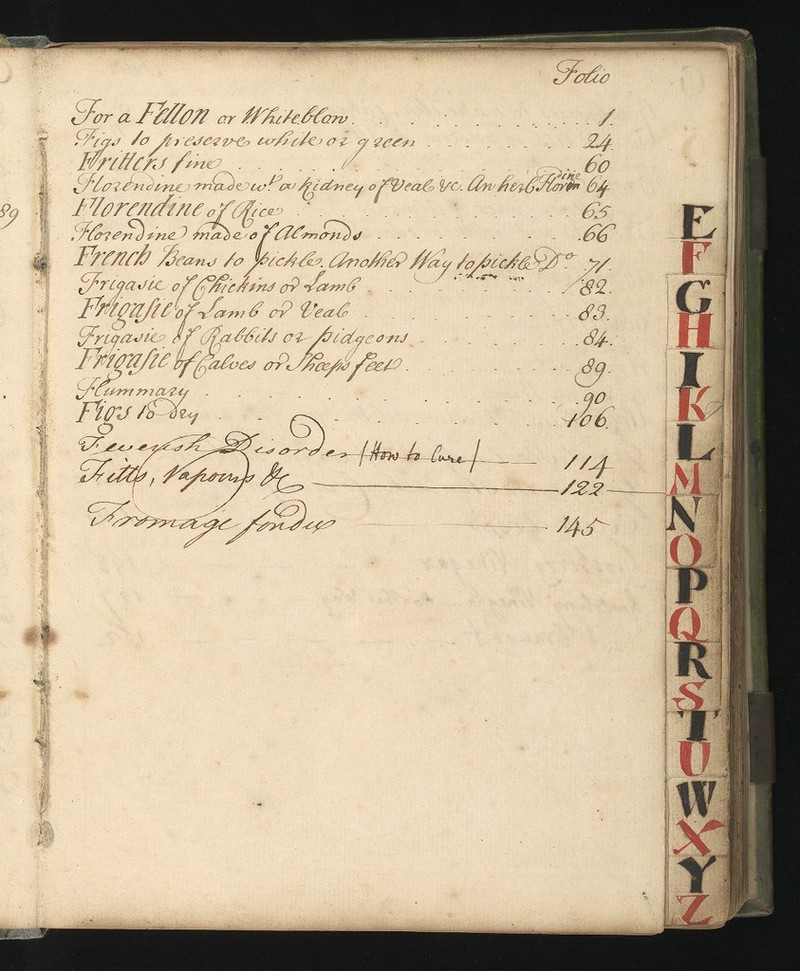 Folio
For a Fellon or Whiteblow. 1
Figs to preserve white or green 24
Fritters fine 60
Florendine made wt. a kidney of Veal &c. An herb Florendine 64
Florendine of Rice 65
Florendine made of Almonds 66
French Beans to pickle. Another Way to pickle Do. 71.
Frigasie of Chickins or Lamb 82.
Frigasie of Lamb or Veal 83.
Frigasie of Rabbits or pidgeons 84.
Frigasie of Calves or Sheeps feet 89.
Flummary 90
Figs to dry 106
Feverish Disorder (How to Cure) 114
Fitts, Vapours &c 122
Fromage fondu 145
89
E
F
G
H
I
K
L
M
N
O
P
Q
R
S
T
U
W
X
Y
Z